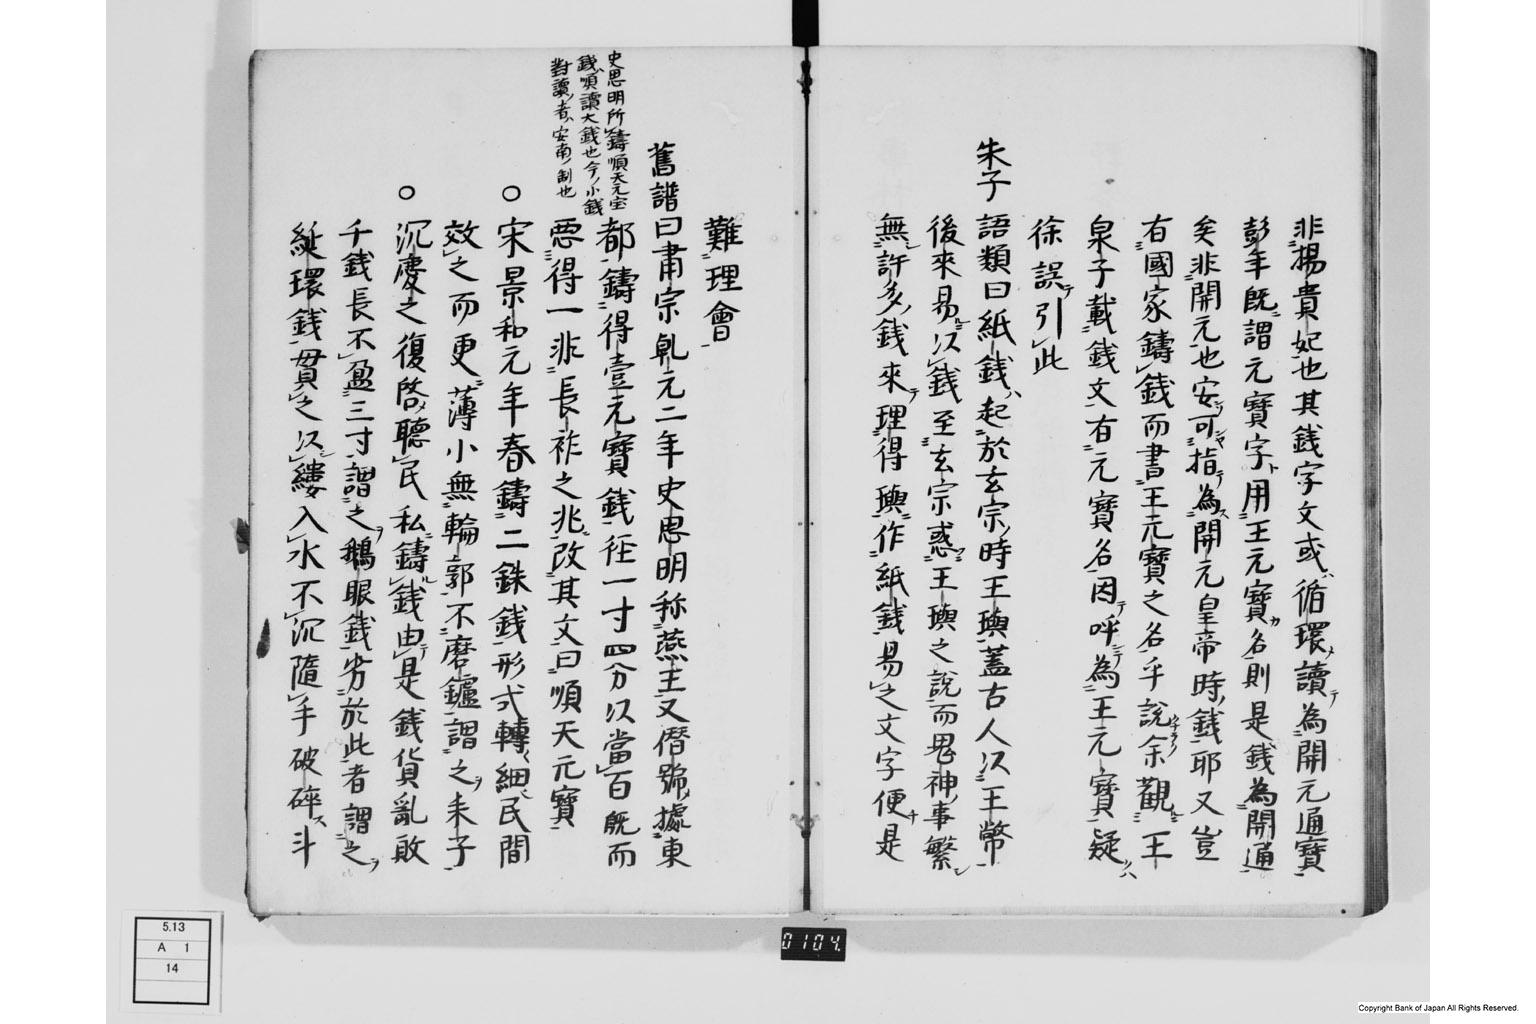 非楊貴妃也其錢字文或循環讀為開元通寶
彭年既謂元寶字用王元寶名則是錢為開通
矣非開元也安可指為開元皇帝時錢耶又豈
有國家鑄錢而書王元寶之名乎說余觀王
泉子載錢文有元寶名因呼為王元寶疑
徐誤引此
朱子
語類曰紙錢起於玄宗時王璵蓋古人以玉幣
後來易以錢至玄宗惑王璵之說而鬼神事繁
無許多錢來理得璵作紙錢易之文字便是
難理會
舊譜曰肅宗乾元二年史思明称燕王又僭號據東
都鑄得壹元寶錢徑一寸四分以當百既而
惡得一非長祚之兆改其文曰順天元寶
史思明所鑄順天元宝
錢順讀大錢也今ノ小錢
對讀ノ者ハ安南ノ制也
○宋景和元年春鑄二銖錢形式轉細民間
效之而更薄小無輪郭不磨鑢謂之耒子
○沉慶之復啓聴民私鑄錢由是錢貨亂敗
千錢長不盈三寸謂之鵝眼錢劣於此者謂之
綖環錢貫之以縷入水不沉隨手破碎斗
0104
5.13
A 1
14
Copyright Bank of Japan All Rights Reserved.